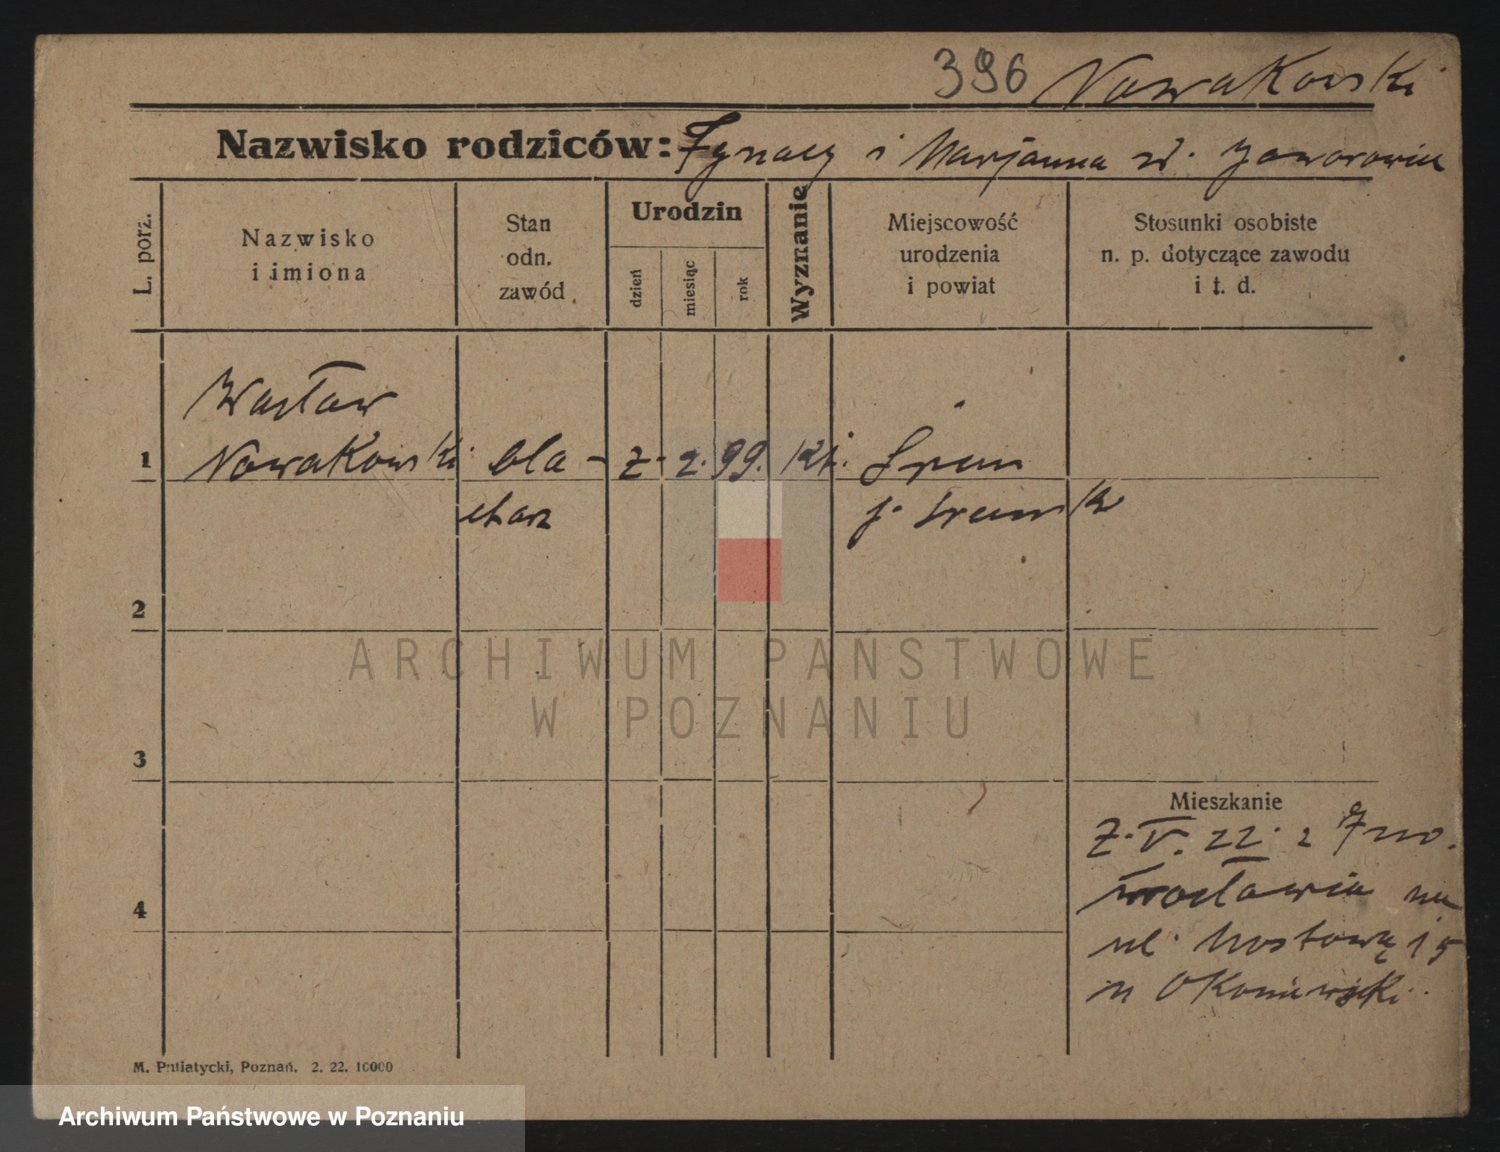 396 Nowakowski
Nazwisko rodziców: Ignacy i Marjanna z d.
L. porz.
Nazwisko
i imiona
Stan
odn.
zawód
Urodzin
dzień
miesiąc
rok
Wyznanie
Miejscowość
urodzenia
i powiat
Stosunki osobiste
n. p. dotyczące zawodu
i t. d.
Wacław
1 Nowakowski bla- 2. 2. 99. kt. Śrem
charz p. Śremsk
2
3
Mieszkanie
2. V. 22. z Ino-
wrocławia na
4
ul. Mostową 15
u Okoniewski
M. Putiatycki, Poznań. 2. 22. 10000
ARCHIWUM PAŃSTWOWE
W POZNANIU
Archiwum Państwowe w Poznaniu